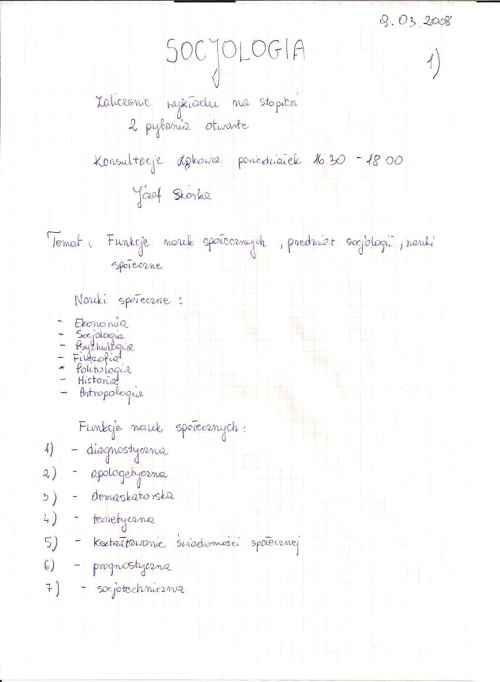 9.03.2008
SOCJOLOGIA
1)
Zaliczenie wykładu na stopień
2 pytania otwarte
Konsultacje Łąkowa poniedziałek 16 30 - 18 00
Józef Skórka
Temat: Funkcje nauk społecznych, przedmiot socjologii, nauki
społeczne
Nauki społeczne:
- Ekonomia
- Socjologia
- Psychologia
- Filozofia
- Politologia
- Historia
- Antropologia
Funkcje nauk społecznych:
1) - diagnostyczna
2) - apologetyczna
3) - demaskatorska
4) - teoretyczna
5) - kształtowanie świadomości społecznej
6) - prognostyczna
7) - socjotechniczna